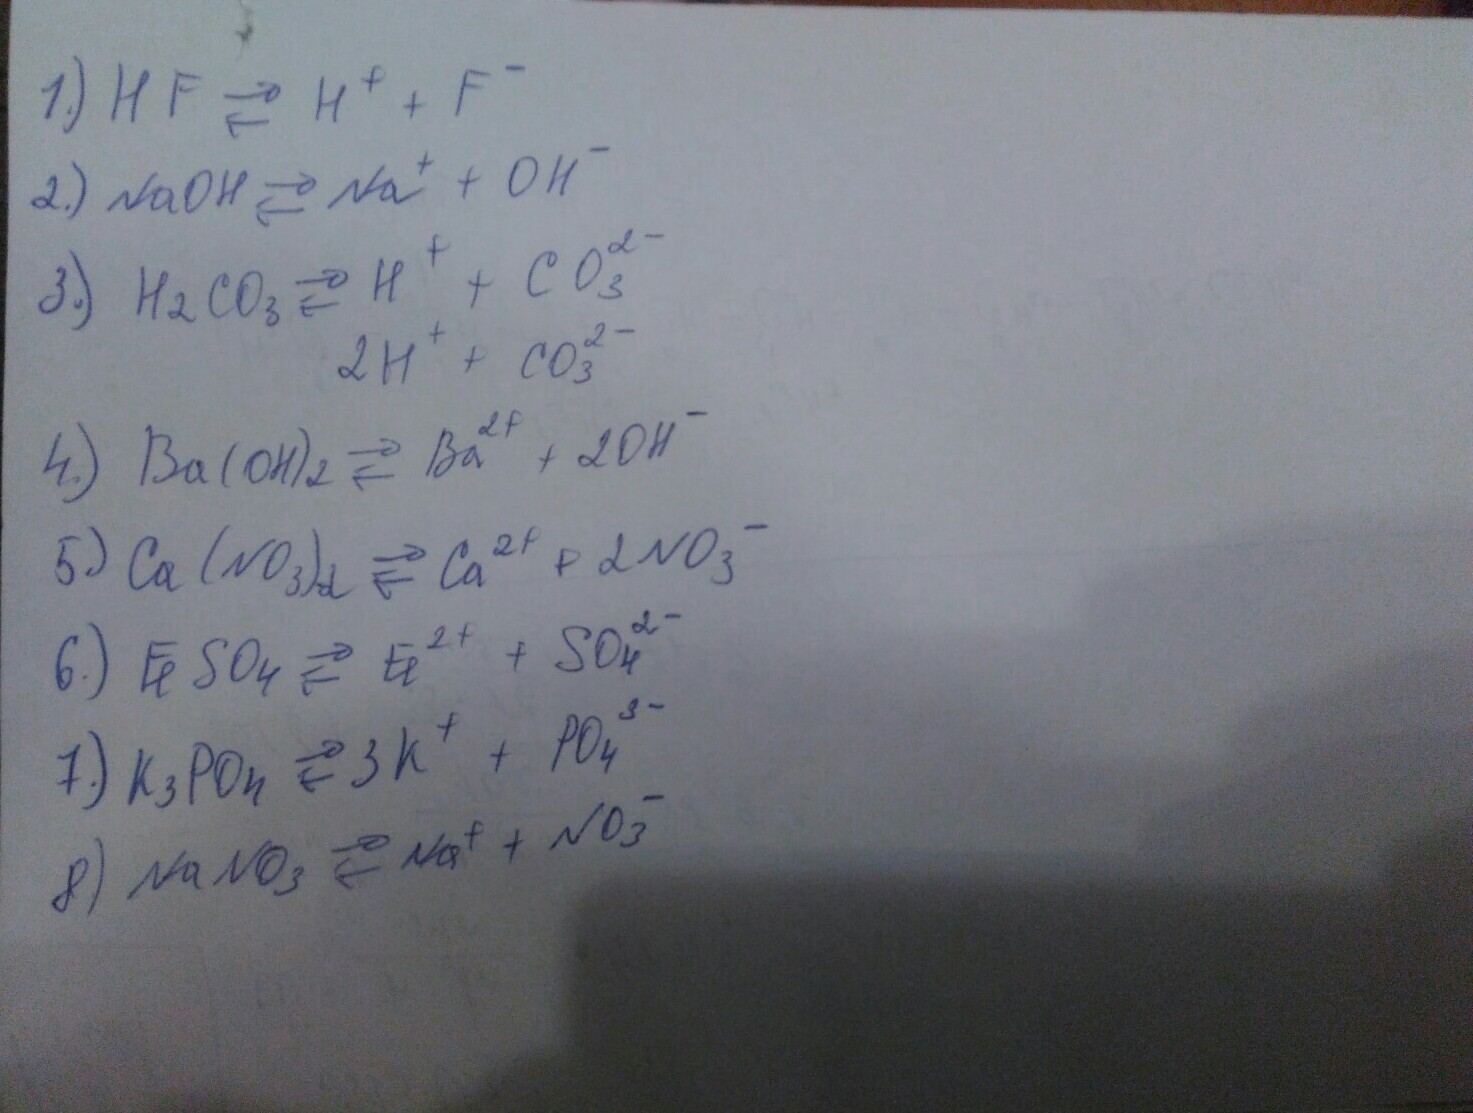 1.) HF ⇄ H⁺ + F⁻
2.) NaOH ⇄ Na⁺ + OH⁻
3.) H₂CO₃ ⇄ H⁺ + CO₃²⁻
2H⁺ + CO₃²⁻
4.) Ba(OH)₂ ⇄ Ba²⁺ + 2OH⁻
5.) Ca(NO₃)₂ ⇄ Ca²⁺ + 2NO₃⁻
6.) FeSO₄ ⇄ Fe²⁺ + SO₄²⁻
7.) K₃PO₄ ⇄ 3K⁺ + PO₄³⁻
8) NaNO₃ ⇄ Na⁺ + NO₃⁻